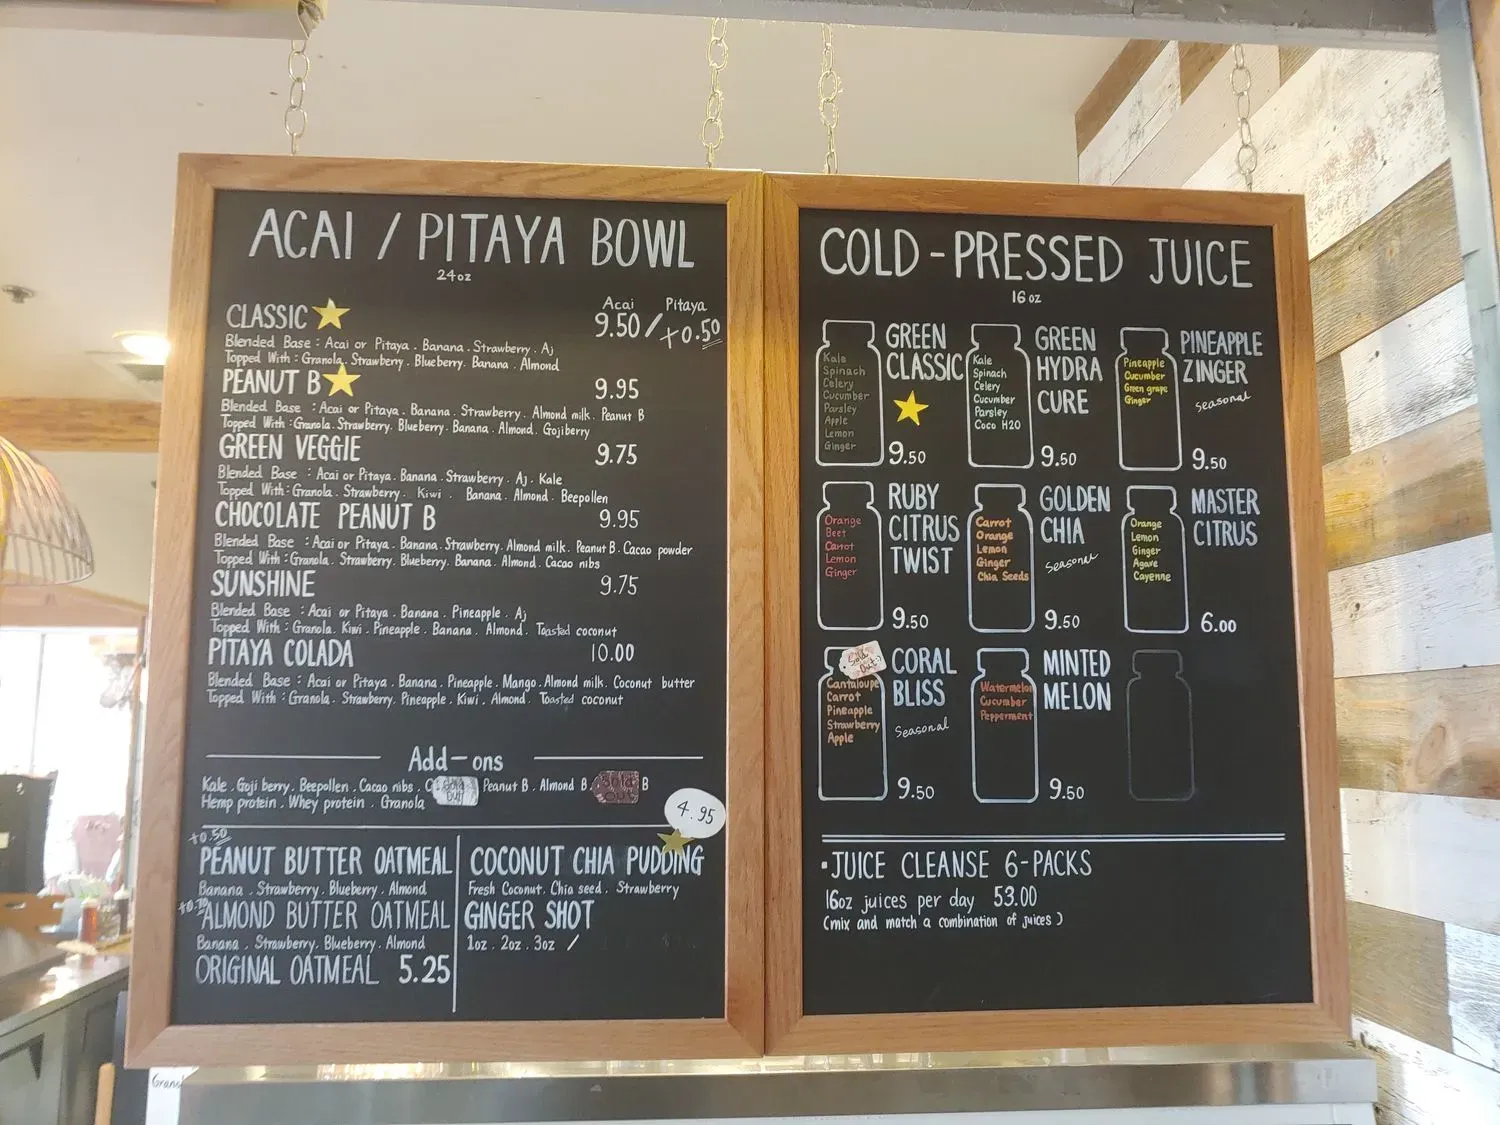 ACAI / PITAYA BOWL
24oz
Acai Pitaya
CLASSIC 9.50 / +0.50
Blended Base : Acai or Pitaya . Banana . Strawberry . Aj
Topped With : Granola . Strawberry . Blueberry . Banana . Almond
PEANUT B 9.95
Blended Base : Acai or Pitaya . Banana . Strawberry . Almond milk . Peanut B
Topped With : Granola . Strawberry . Blueberry . Banana . Almond . Gojiberry
GREEN VEGGIE 9.75
Blended Base : Acai or Pitaya . Banana . Strawberry . Aj . Kale
Topped With : Granola . Strawberry . Kiwi . Banana . Almond . Beepollen
CHOCOLATE PEANUT B 9.95
Blended Base : Acai or Pitaya . Banana . Strawberry . Almond milk . Peanut B . Cacao powder
Topped With : Granola . Strawberry . Blueberry . Banana . Almond . Cacao nibs
SUNSHINE 9.75
Blended Base : Acai or Pitaya . Banana . Pineapple . Aj
Topped With : Granola . Kiwi . Pineapple . Banana . Almond . Toasted coconut
PITAYA COLADA 10.00
Blended Base : Acai or Pitaya . Banana . Pineapple . Mango . Almond milk . Coconut butter
Topped With : Granola . Strawberry . Pineapple . Kiwi . Almond . Toasted coconut
Add-ons
Kale . Goji berry . Beepollen . Cacao nibs . Sold out Peanut B . Almond B . Sold out B
Hemp protein . Whey protein . Granola
4.95
+0.50
PEANUT BUTTER OATMEAL
Banana . Strawberry . Blueberry . Almond
ALMOND BUTTER OATMEAL
Banana . Strawberry . Blueberry . Almond
ORIGINAL OATMEAL 5.25
COCONUT CHIA PUDDING
Fresh Coconut . Chia seed . Strawberry
GINGER SHOT
1oz . 2oz . 3oz /
COLD-PRESSED JUICE
16oz
GREEN
CLASSIC
Kale
Spinach
Celery
Cucumber
Parsley
Apple
Lemon
Ginger
9.50
GREEN
HYDRA
CURE
Kale
Spinach
Celery
Cucumber
Parsley
Coco H2O
9.50
PINEAPPLE
ZINGER
seasonal
Pineapple
Cucumber
Green grape
Ginger
9.50
RUBY
CITRUS
TWIST
Orange
Beet
Carrot
Lemon
Ginger
9.50
GOLDEN
CHIA
seasonal
Carrot
Orange
Lemon
Ginger
Chia Seeds
9.50
MASTER
CITRUS
Orange
Lemon
Ginger
Agave
Cayenne
6.00
CORAL
BLISS
Seasonal
Sold
Out :)
Cantaloupe
Carrot
Pineapple
Strawberry
Apple
9.50
MINTED
MELON
Watermelon
Cucumber
Pepperment
9.50
· JUICE CLEANSE 6-PACKS
16oz juices per day 53.00
(mix and match a combination of juices)